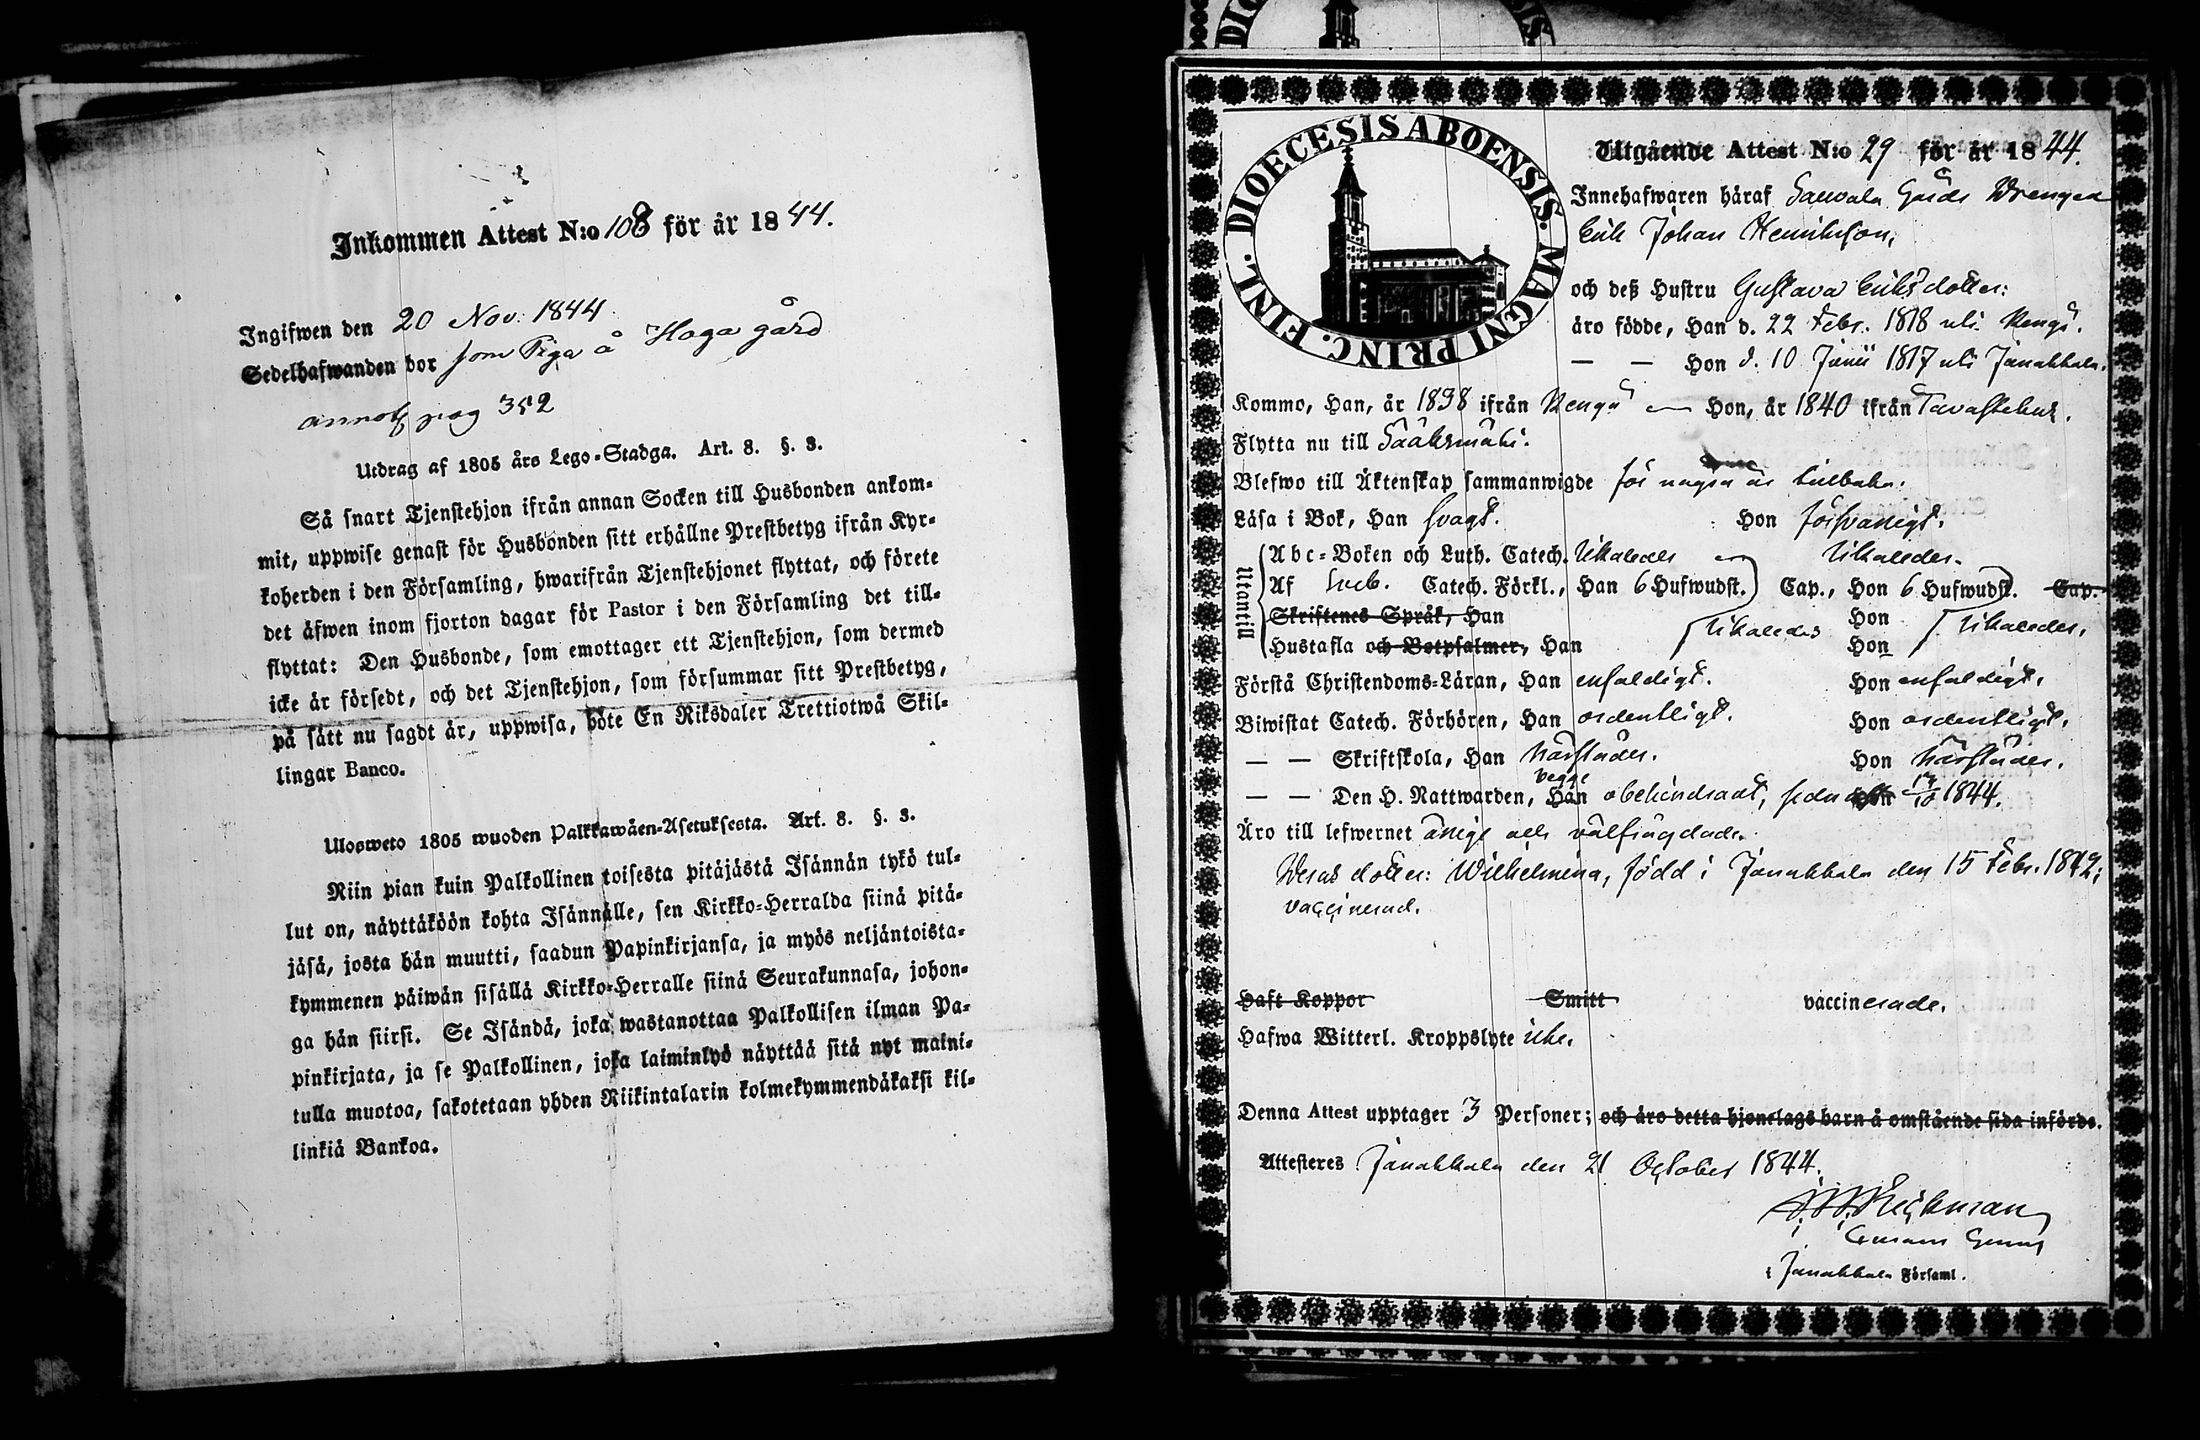 Inkommen Attest N:o 108 för år 1844.
Ingifwen den 20 Nov. 1844
Sedelhafwanden bor som Piga å Haga gård
annot pag 352
Utdrag af 1805 års Lego-Stadga. Art. 8. §. 3.
Så snart Tjenstehjon ifrån annan Socken till Husbonden ankom-
mit, uppwise genast för Husbonden sitt erhållne Prestbetyg ifrån Kyr-
koherden i den Församling, hwarifrån Tjenstehjonet flyttat, och förete
det äfwen inom fjorton dagar för Pastor i den Församling det till-
flyttat: Den Husbonde, som emottager ett Tjenstehjon, som dermed
icke är försedt, och det Tjenstehjon, som försummar sitt Prestbetyg,
på sätt nu sagdt är, uppwisa, böte En Riksdaler Trettiotwå Skil-
lingar Banco.
Ulosweto 1805 wuoden Palkkawäen-Asetuksesta. Art. 8. §. 3.
Niin pian kuin Palkollinen toisesta pitäjästä Isännän tykö tul-
lut on, näyttäköön kohta Isännälle, sen Kirkko-Herralda siinä pitä-
jäsä, josta hän muutti, saadun Papinkirjansa, ja myös neljäntoista-
kymmenen päiwän sisällä Kirkko-Herralle siinä Seurakunnasa, johon-
ga hän siirsi. Se Isändä, joka wastanottaa Palkollisen ilman Pa-
pinkirjata, ja se Palkollinen, joka laiminlyö näyttää sitä nyt maini-
tulla muotoa, sakotetaan yhden Riikintalarin kolmekymmendäkaksi kil-
linkiä Bankoa.
DIOECESIS ABOENSIS. MAGNI PRINC. FINL.
Utgående Attest N:o 29 för år 1844.
Innehafwaren häraf Sauvala Gårds Drengen
Erik Johan Henriksson,
och deß Hustru Gustava Eriksdotter:
äro födde, Han d. 22 Febr. 1818 uti Rengo.
— — Hon d. 10 Junii 1817 uti Janakkala.
Kommo, Han, år 1838 ifrån Rengo — Hon, år 1840 ifrån Tavastehus.
Flytta nu till Sääksmäki.
Blefwo till Äktenskap sammanwigde för några år tillbaka.
Läsa i Bok, Han svagt. Hon försvarligt.
Utantill
Abc-Boken och Luth. Catech. Likaledes — Likaledes.
Af Catech. Förkl., Han 6 Hufwudst. Cap., Hon 6 Hufwudst. Cap.
Skriftenes Språk, Han Hon
Hustafla och Botpsalmer, Han Likaledes Hon Likaledes.
Förstå Christendoms-Läran, Han enfaldigt. Hon enfaldigt.
Biwistat Catech. Förhören, Han ordentligt. Hon ordentligt.
— — Skriftskola, Han Härstädes. Hon Härstädes.
— — Den H. Nattwarden, Han begge obehindradt, sedn 1844.
Äro till lefwernet ärlige och välfrägdade.
Deras dotter: Wilhelmina, född i Janakkala den 15 Febr. 1842;
vaccinerad.
Haft Koppor Smitt vaccinerade.
Hafwa Witterl. Kroppslyte icke.
Denna Attest upptager 3 Personer; och äro detta hjonelags barn å omstående sida införde.
Attesteres Janakkala den 21 October 1844.
i Janakkala Församl.